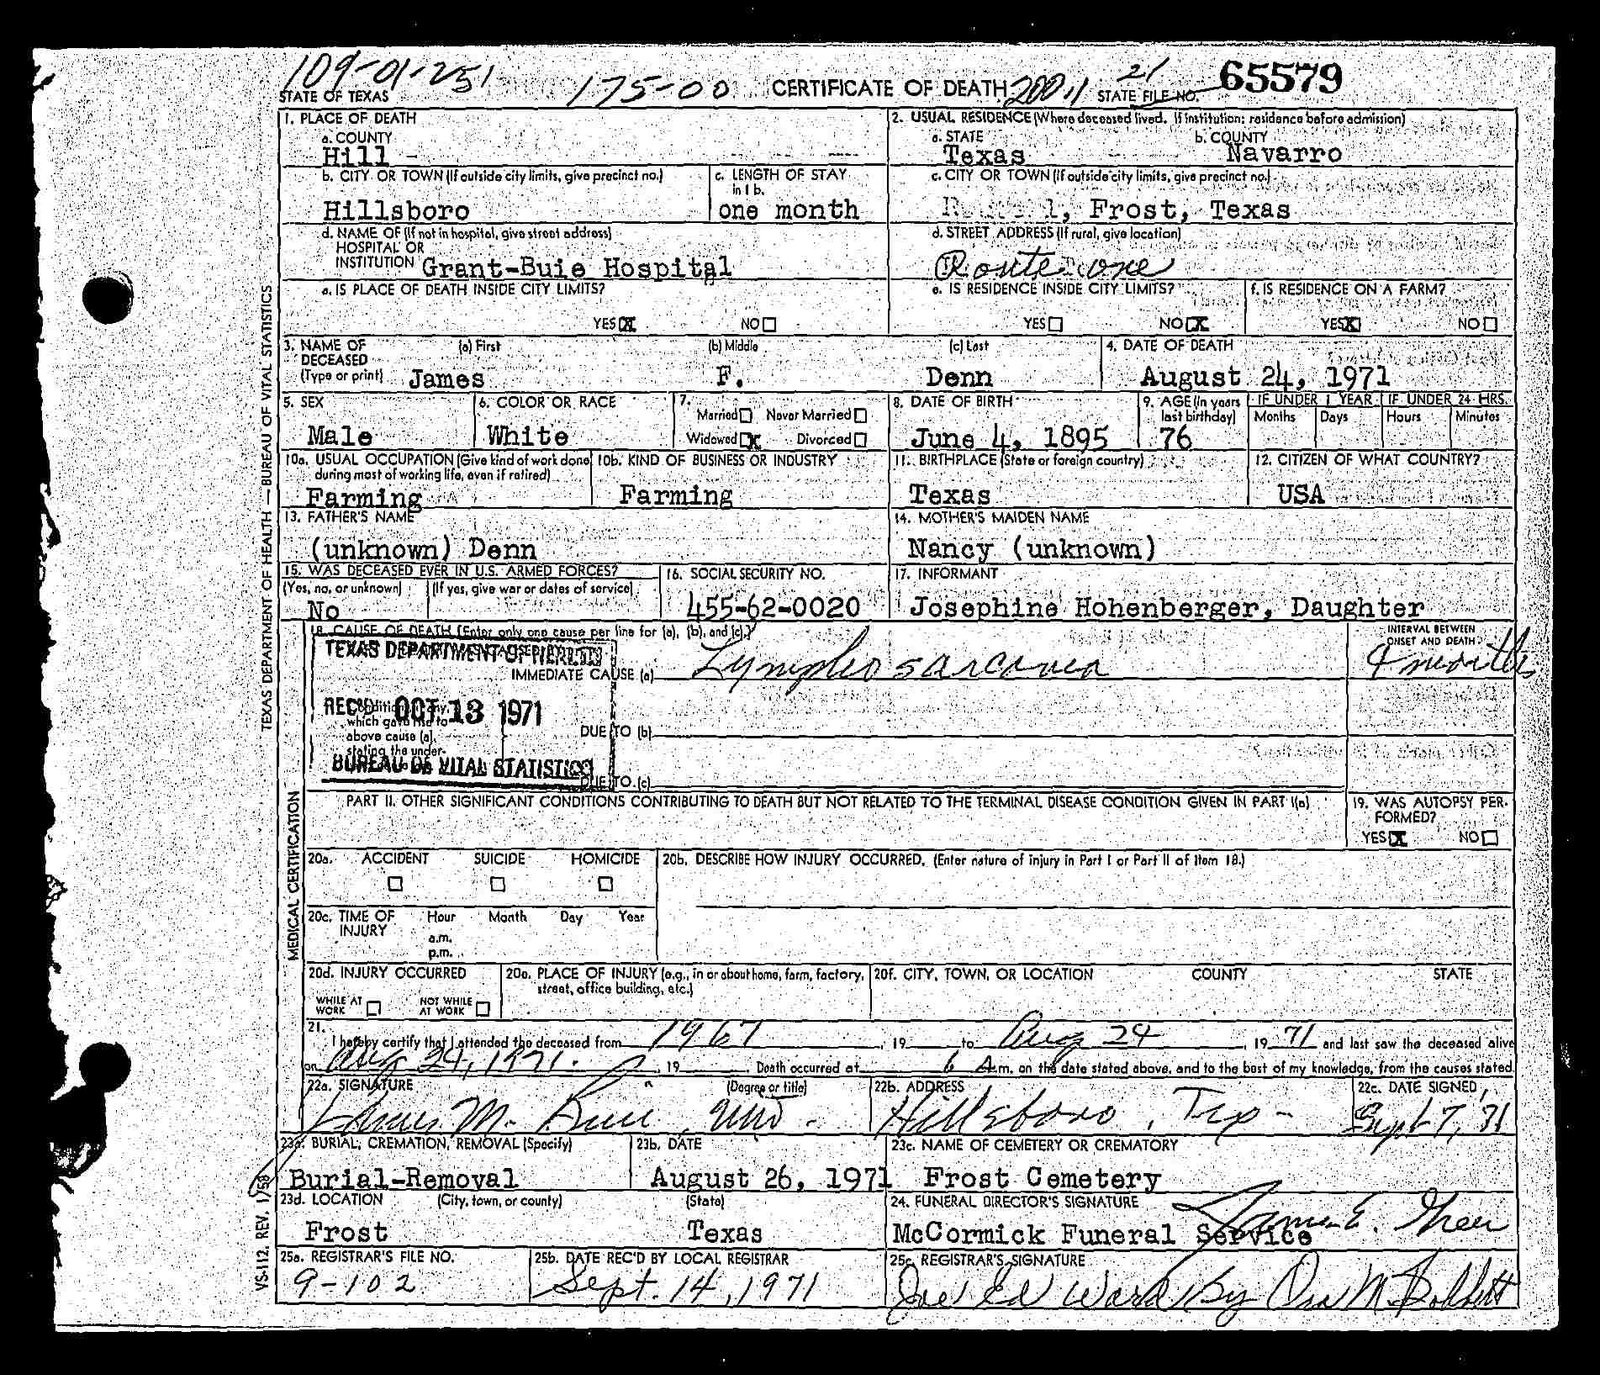 109-01-251
175-00 CERTIFICATE OF DEATH 200.1 21 65579
STATE OF TEXAS STATE FILE NO.
1. PLACE OF DEATH
a. COUNTY
Hill
2. USUAL RESIDENCE (Where deceased lived. If institution: residence before admission)
a. STATE b. COUNTY
Texas Navarro
b. CITY OR TOWN (If outside city limits, give precinct no.)
Hillsboro
c. LENGTH OF STAY
in 1 b.
one month
c. CITY OR TOWN (If outside city limits, give precinct no.)
Frost, Texas
d. NAME OF (If not in hospital, give street address)
HOSPITAL OR
INSTITUTION Grant-Buie Hospital
d. STREET ADDRESS (If rural, give location)
Route one
e. IS PLACE OF DEATH INSIDE CITY LIMITS?
YES X NO
e. IS RESIDENCE INSIDE CITY LIMITS?
YES NO X
f. IS RESIDENCE ON A FARM?
YES X NO
3. NAME OF (a) First (b) Middle (c) Last
DECEASED
(Type or print) James F. Denn
4. DATE OF DEATH
August 24, 1971
5. SEX
Male
6. COLOR OR RACE
White
7.
Married Never Married
Widowed X Divorced
8. DATE OF BIRTH
June 4, 1895
9. AGE (In years
last birthday)
76
IF UNDER 1 YEAR IF UNDER 24 HRS.
Months Days Hours Minutes
10a. USUAL OCCUPATION (Give kind of work done
during most of working life, even if retired)
Farming
10b. KIND OF BUSINESS OR INDUSTRY
Farming
11. BIRTHPLACE (State or foreign country)
Texas
12. CITIZEN OF WHAT COUNTRY?
USA
13. FATHER'S NAME
(unknown) Denn
14. MOTHER'S MAIDEN NAME
Nancy (unknown)
15. WAS DECEASED EVER IN U.S. ARMED FORCES?
(Yes, no, or unknown) (If yes, give war or dates of service)
No
16. SOCIAL SECURITY NO.
455-62-0020
17. INFORMANT
Josephine Hohenberger, Daughter
18. CAUSE OF DEATH (Enter only one cause per line for (a), (b), and (c).)
INTERVAL BETWEEN
ONSET AND DEATH
TEXAS DEPARTMENT OF
IMMEDIATE CAUSE (a) Lymphosarcoma 4 months
REC'D OCT 13 1971
which gave rise to
above cause (a),
stating the under-
DUE TO (b)
BUREAU OF VITAL STATISTICS
DUE TO (c)
PART II. OTHER SIGNIFICANT CONDITIONS CONTRIBUTING TO DEATH BUT NOT RELATED TO THE TERMINAL DISEASE CONDITION GIVEN IN PART I(a)
19. WAS AUTOPSY PER-
FORMED?
YES X NO
20a. ACCIDENT SUICIDE HOMICIDE
20b. DESCRIBE HOW INJURY OCCURRED. (Enter nature of injury in Part I or Part II of Item 18.)
20c. TIME OF Hour Month Day Year
INJURY
a.m.
p.m.
20d. INJURY OCCURRED
WHILE AT WORK NOT WHILE AT WORK
20e. PLACE OF INJURY (e.g., in or about home, farm, factory,
street, office building, etc.)
20f. CITY, TOWN, OR LOCATION COUNTY STATE
21.
I hereby certify that I attended the deceased from 1967, 19 to Aug 24 19 71 and last saw the deceased alive
on Aug 24, 1971, 19 Death occurred at 6 A.m. on the date stated above, and to the best of my knowledge, from the causes stated.
22a. SIGNATURE (Degree or title)
M. Buie, MD.
22b. ADDRESS
Hillsboro, Tex
22c. DATE SIGNED
Sept 7, 71
23a. BURIAL, CREMATION, REMOVAL (Specify)
Burial-Removal
23b. DATE
August 26, 1971
23c. NAME OF CEMETERY OR CREMATORY
Frost Cemetery
23d. LOCATION (City, town, or county) (State)
Frost Texas
24. FUNERAL DIRECTOR'S SIGNATURE
McCormick Funeral Service James E. Green
25a. REGISTRAR'S FILE NO.
9-102
25b. DATE REC'D BY LOCAL REGISTRAR
Sept. 14, 1971
25c. REGISTRAR'S SIGNATURE
Joe Ed Ward By M.
TEXAS DEPARTMENT OF HEALTH — BUREAU OF VITAL STATISTICS
MEDICAL CERTIFICATION
VS-112, REV. 1/58